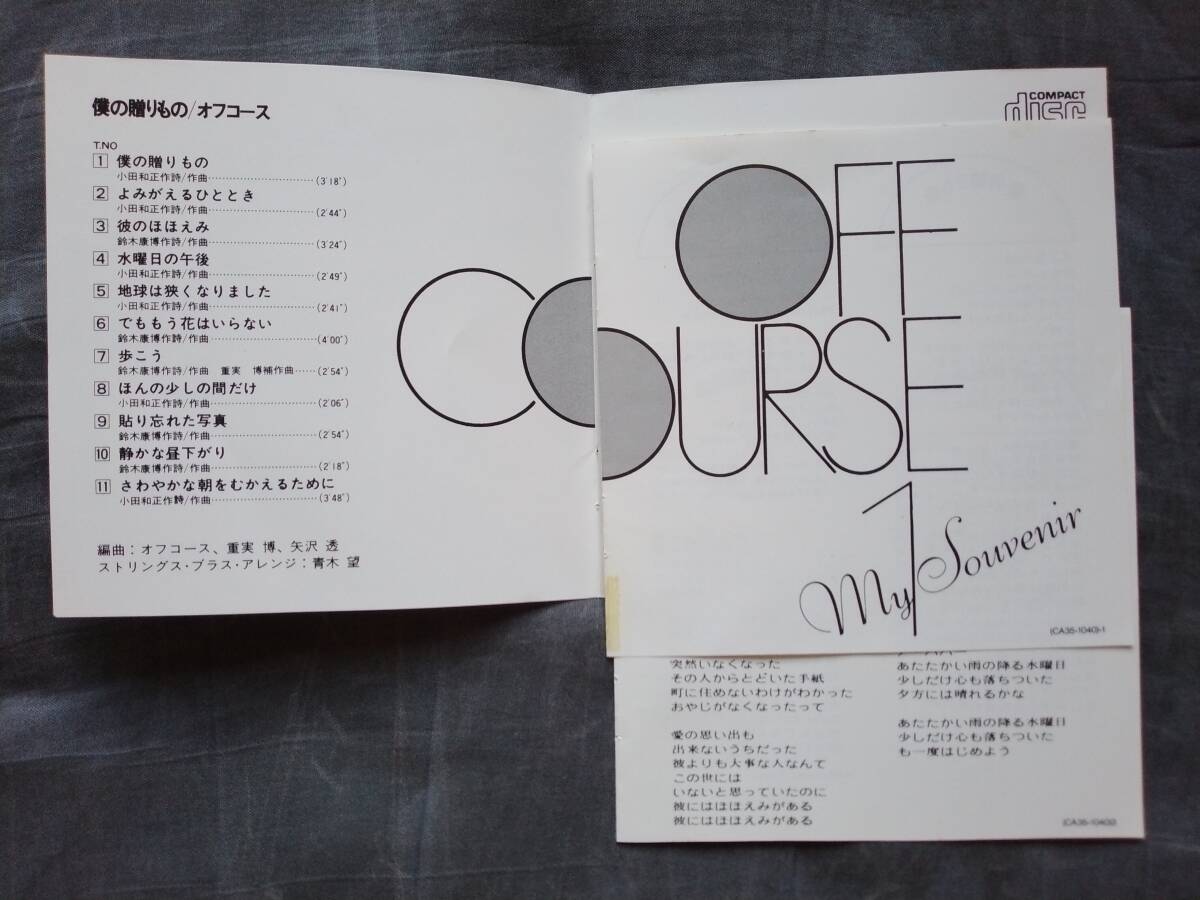 僕の贈りもの/オフコース
T.NO
1 僕の贈りもの
小田和正作詩/作曲……………………(3'18")
2 よみがえるひととき
小田和正作詩/作曲……………………(2'44")
3 彼のほほえみ
鈴木康博作詩/作曲……………………(3'24")
4 水曜日の午後
小田和正作詩/作曲……………………(2'49")
5 地球は狭くなりました
小田和正作詩/作曲……………………(2'41")
6 でももう花はいらない
鈴木康博作詩/作曲……………………(4'00")
7 歩こう
鈴木康博作詩/作曲 重実 博補作曲……(2'54")
8 ほんの少しの間だけ
小田和正作詩/作曲……………………(2'06")
9 貼り忘れた写真
鈴木康博作詩/作曲……………………(2'54")
10 静かな昼下がり
鈴木康博作詩/作曲……………………(2'18")
11 さわやかな朝をむかえるために
小田和正作詩/作曲……………………(3'48")
編曲:オフコース、重実 博、矢沢 透
ストリングス・ブラス・アレンジ:青木 望
COMPACT
disc
OFF
COURSE
1
My Souvenir
(CA35-1040)-1
突然いなくなった
その人からとどいた手紙
町に住めないわけがわかった
おやじがなくなったって
愛の思い出も
出来ないうちだった
彼よりも大事な人なんて
この世には
いないと思っていたのに
彼にはほほえみがある
彼にはほほえみがある
あたたかい雨の降る水曜日
少しだけ心も落ちついた
夕方には晴れるかな
あたたかい雨の降る水曜日
少しだけ心も落ちついた
も一度はじめよう
(CA35-1040)2